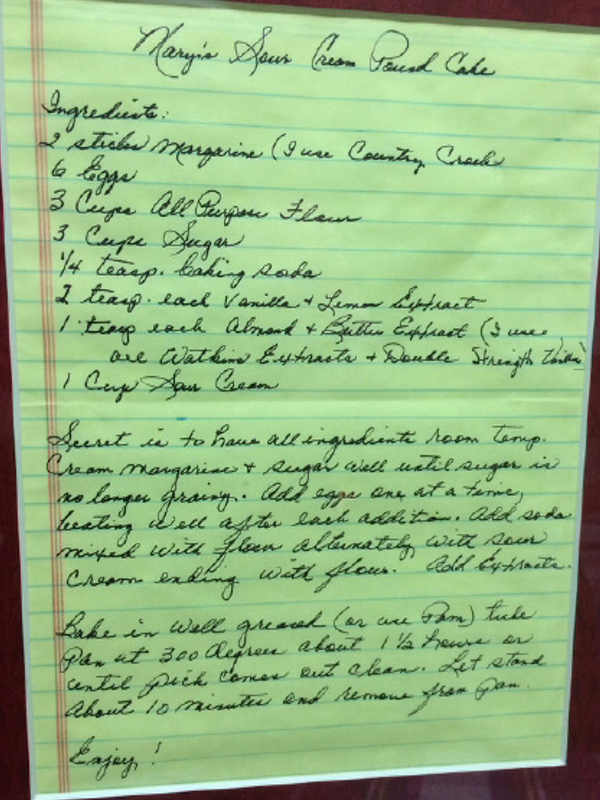 Mary's Sour Cream Pound Cake
Ingredients:
2 sticks Margarine (I use Country Crock
6 Eggs
3 Cups All Purpose Flour
3 Cups Sugar
1/4 teasp. baking soda
2 teasp. each Vanilla + Lemon Extract
1 teasp each Almond + Butter Extract (I use
all Watkins Extracts + Double Strength Vanilla)
1 Cup Sour Cream
Secret is to have all ingredients room temp.
Cream margarine + sugar well until sugar is
no longer grainy. Add eggs one at a time,
beating well after each addition. Add soda
mixed with flour alternately with sour
cream ending with flour. Add Extracts.
Bake in well greased (or use Pam) tube
pan at 300 degrees about 1 1/2 hours or
until pick comes out clean. Let stand
about 10 minutes and remove from pan.
Enjoy!